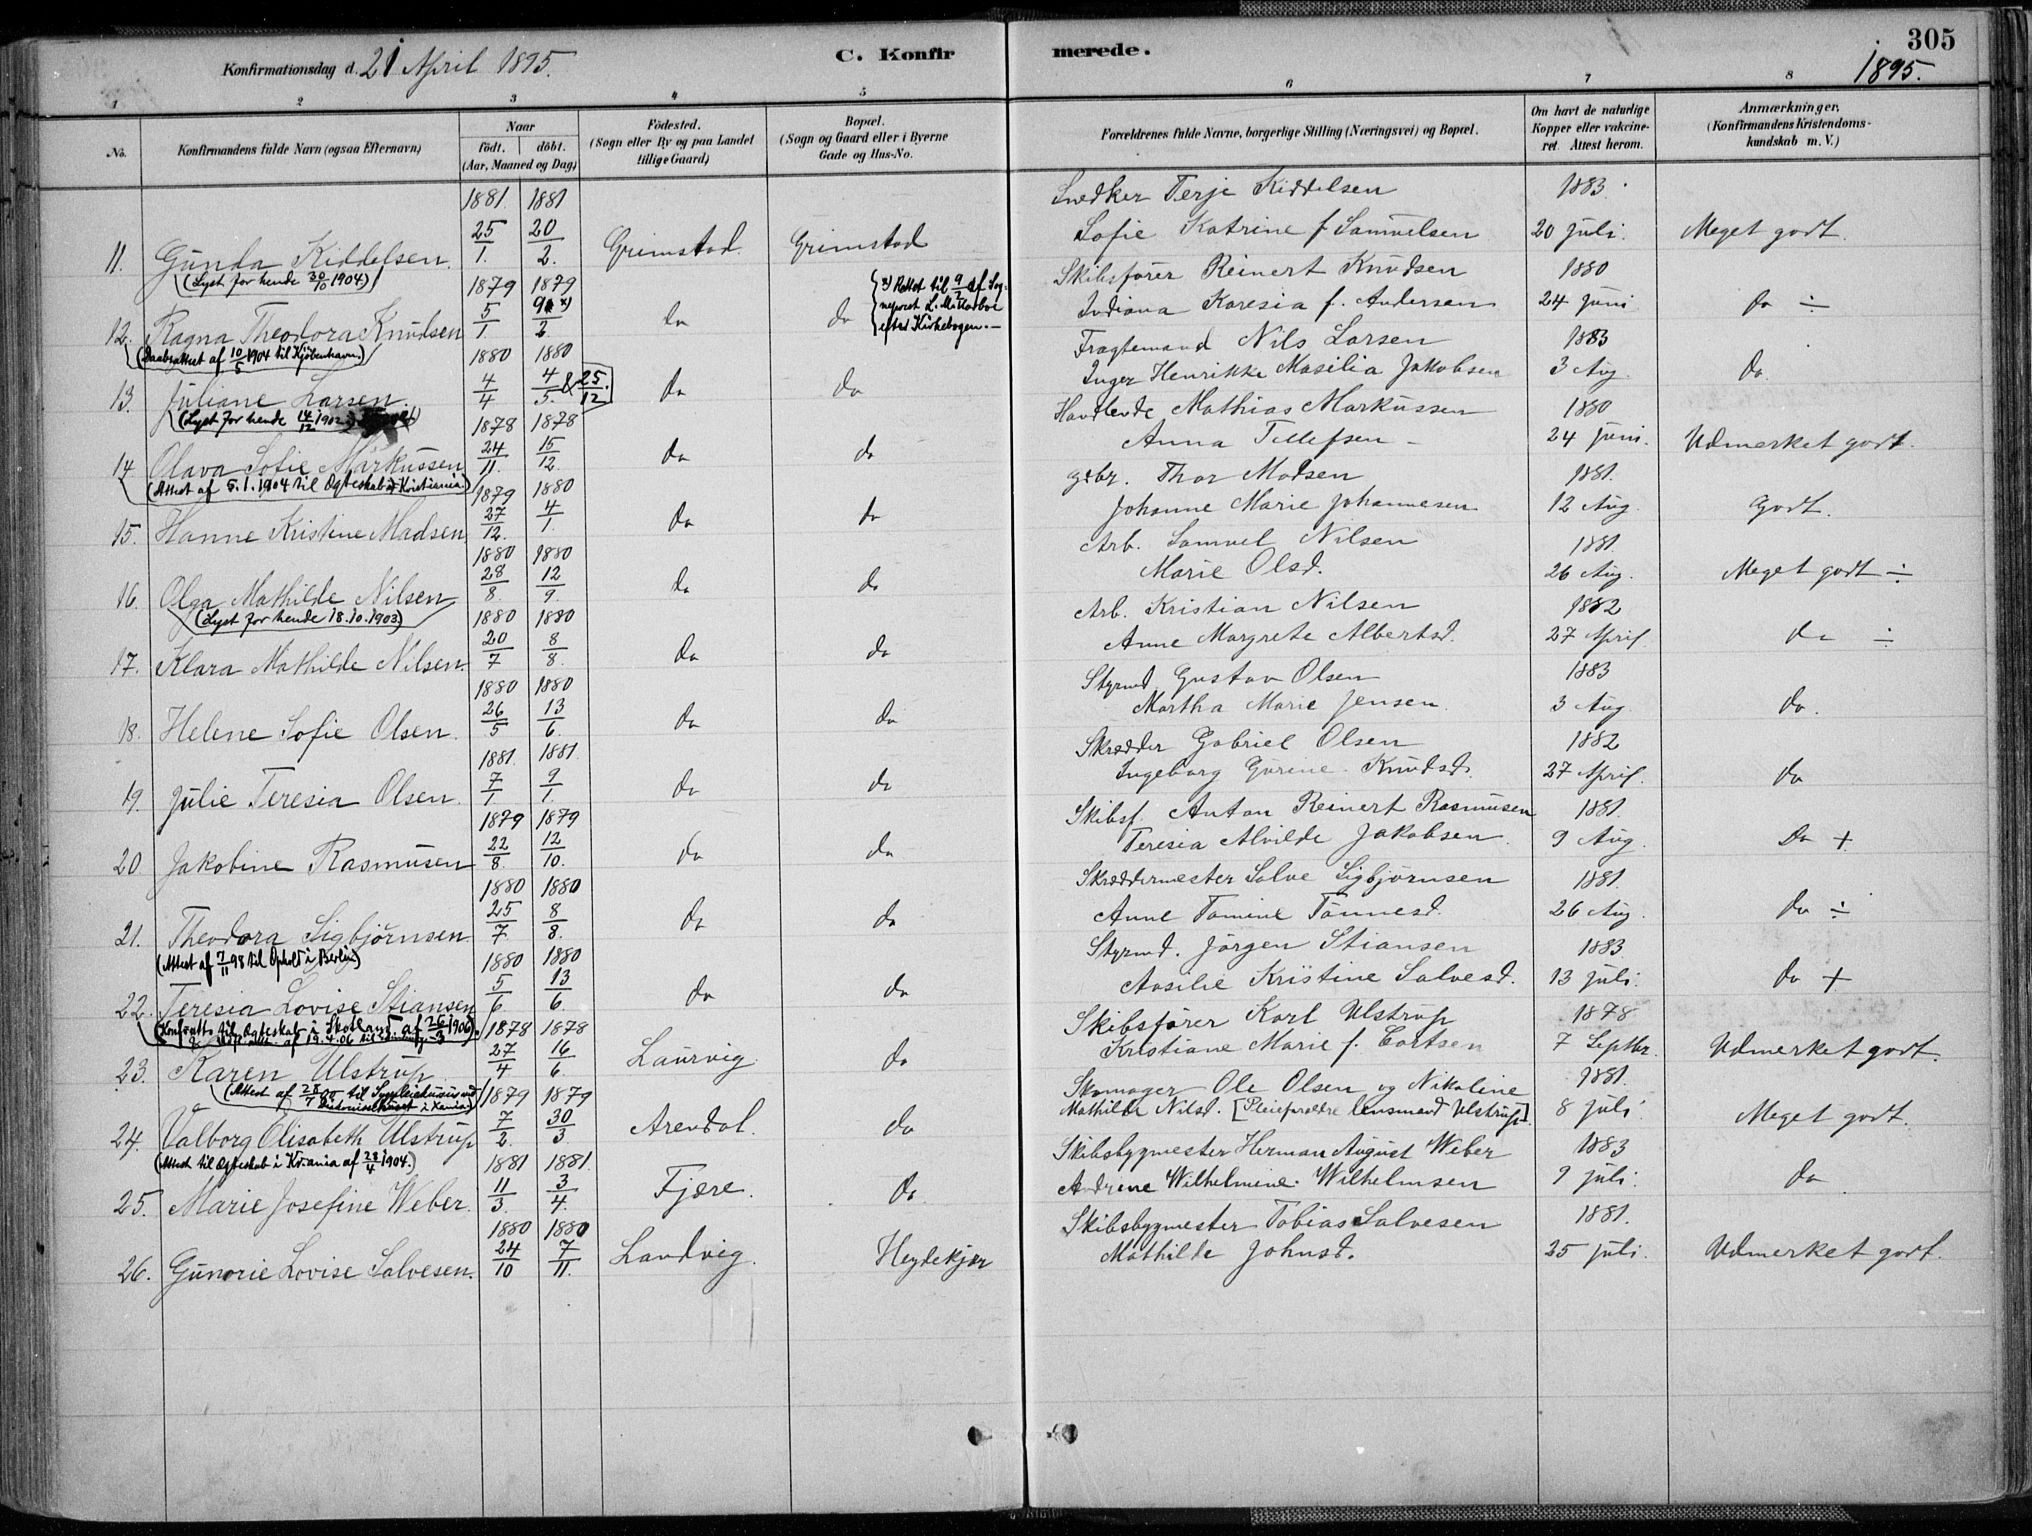 Konfirmationsdag d. 21 April 1895.
C. Konfirmerede.
305
1895.
1 2 3 4 5 6 7 8
No.
Konfirmandens fulde Navn (ogsaa Efternavn)
Naar
födt. döbt.
(Aar, Maaned og Dag)
Födested.
(Sogn eller By og paa Landet
tillige Gaard)
Bopæl.
(Sogn og Gaard eller i Byerne
Gade og Hus-No.
Forældrenes fulde Navne, borgerlige Stilling (Næringsvei) og Bopæl.
Om havt de naturlige
Kopper eller vakcine-
ret. Attest herom.
Anmærkninger,
(Konfirmandens Kristendoms-
kundskab m. V.)
1881 1881 Snedker Terje Kiddelsen 1883
11. Gunda Kiddelsen. 25/1. 20/2. Grimstad Grimstad Sofie Katrine f. Samuelsen 20 Juli. Meget godt.
(Lyst for hende 30/10 1904)
1879 1879 Skibsfører Reinert Knudsen 1880
12. Ragna Theodora Knudsen 5/1. 9 x)/2. do do Indiana Karesia f. Andersen 24 Juni do ÷
x) Rettet til 9/2 af Sog-
neprest
efter Kirkebogen.
(Daabsattest af 10/5 1904 til Kjöbenhavn.)
1880 1880 Fragtemand Nils Larsen 1883
13. Juliane Larsen. 4/4 4/5. & 25/12 do do Inger Henrikke Masilia Jakobsen 3 Aug. do.
(Lyst for hende 14/12 1902)
1878 1878 Handlende Mathias Markussen 1880
14. Olava Sofie Markussen 24/11. 15/12. do do Anna Tellefsen 24 Juni. Udmerket godt.
(Attest af 5.1.1904 til Ægteskab i Kristiania)
1879 1880 gdbr. Thor Madsen 1881.
15. Hanne Kristine Madsen 27/12. 4/1. do do Johanne Marie Johannesen 12 Aug. Godt.
1880 1880 Arb. Samuel Nilsen 1881.
16. Olga Mathilde Nilsen 28/8. 12/9. do do Marie Olsd. 26 Aug. Meget godt ÷
(Lyst for hende 18.10.1903)
1880 1880 Arb. Kristian Nilsen 1882
17. Klara Mathilde Nilsen. 20/7 8/8. do do Anne Margrete Albertsd. 27 April. do ÷
1880 1880 Styrmd Gustav Olsen 1883
18. Helene Sofie Olsen. 26/5 13/6. do do Martha Marie Jensen. 3 Aug. do.
1881. 1881. Skrædder Gabriel Olsen 1882
19. Julie Teresia Olsen. 7/1. 9/1. do do Ingeborg Gurine Knudsd. 27 April. do
1879 1879 Skibsf. Anton Reinert Rasmusen 1881.
20. Jakobine Rasmusen 22/8. 12/10. do do Teresia Alvilde Jakobsen. 9 Aug. do +
1880 1880 Skræddermester Salve Sigbjørnsen 1881.
21. Theodora Sigbjørnsen. 25/7. 8/8. do do Anne Tomine Tönnesd. 26 Aug. do ÷
(Attest af 7/11 98 til Ophold i Berlin)
1880 1880 Styrmd. Jörgen Stiansen 1883
22. Teresia Lovise Stiansen 5/6 13/6. do do Aasilie Kristine Salvesd. 13 Juli. do +
(Konfratt. til Ægteskab i Skotland af 26/3 1906
1878 1878 Skibsfører Karl Ulstrup 1878
23. Karen Ulstrup. 27/4 16/6. Laurvig do Kristiane Marie f. Cortsen 7 Septbr. Udmerket godt.
(Attest af 28/7 00 til Sygepleiekursus ved
Diakonissehuset i Xania)
1879 1879 Skomager Ole Olsen og Nikoline 1881.
24. Valborg Elisabeth Ulstrup 7/2. 30/3 Arendal. do Mathilde Nilsd. [Pleieforældre lensmand Ulstrup]. 8 Juli Meget godt.
(Attest til Ægteskab i Kr.ania af 28/4 1904.)
1881 1881. Skibsbygmester Herman August Weber 1883
25. Marie Josefine Weber. 11/3. 3/4. Fjære. do Andrine Wilhelmine Wilhelmsen 9 Juli. do
1880 1880 Skibsbygmester Tobias Salvesen 1881.
26. Gunorie Lovise Salvesen. 24/10 7/11. Landvig. Heydekjær Mathilde Johnsd. 25 Juli. Udmerket godt.